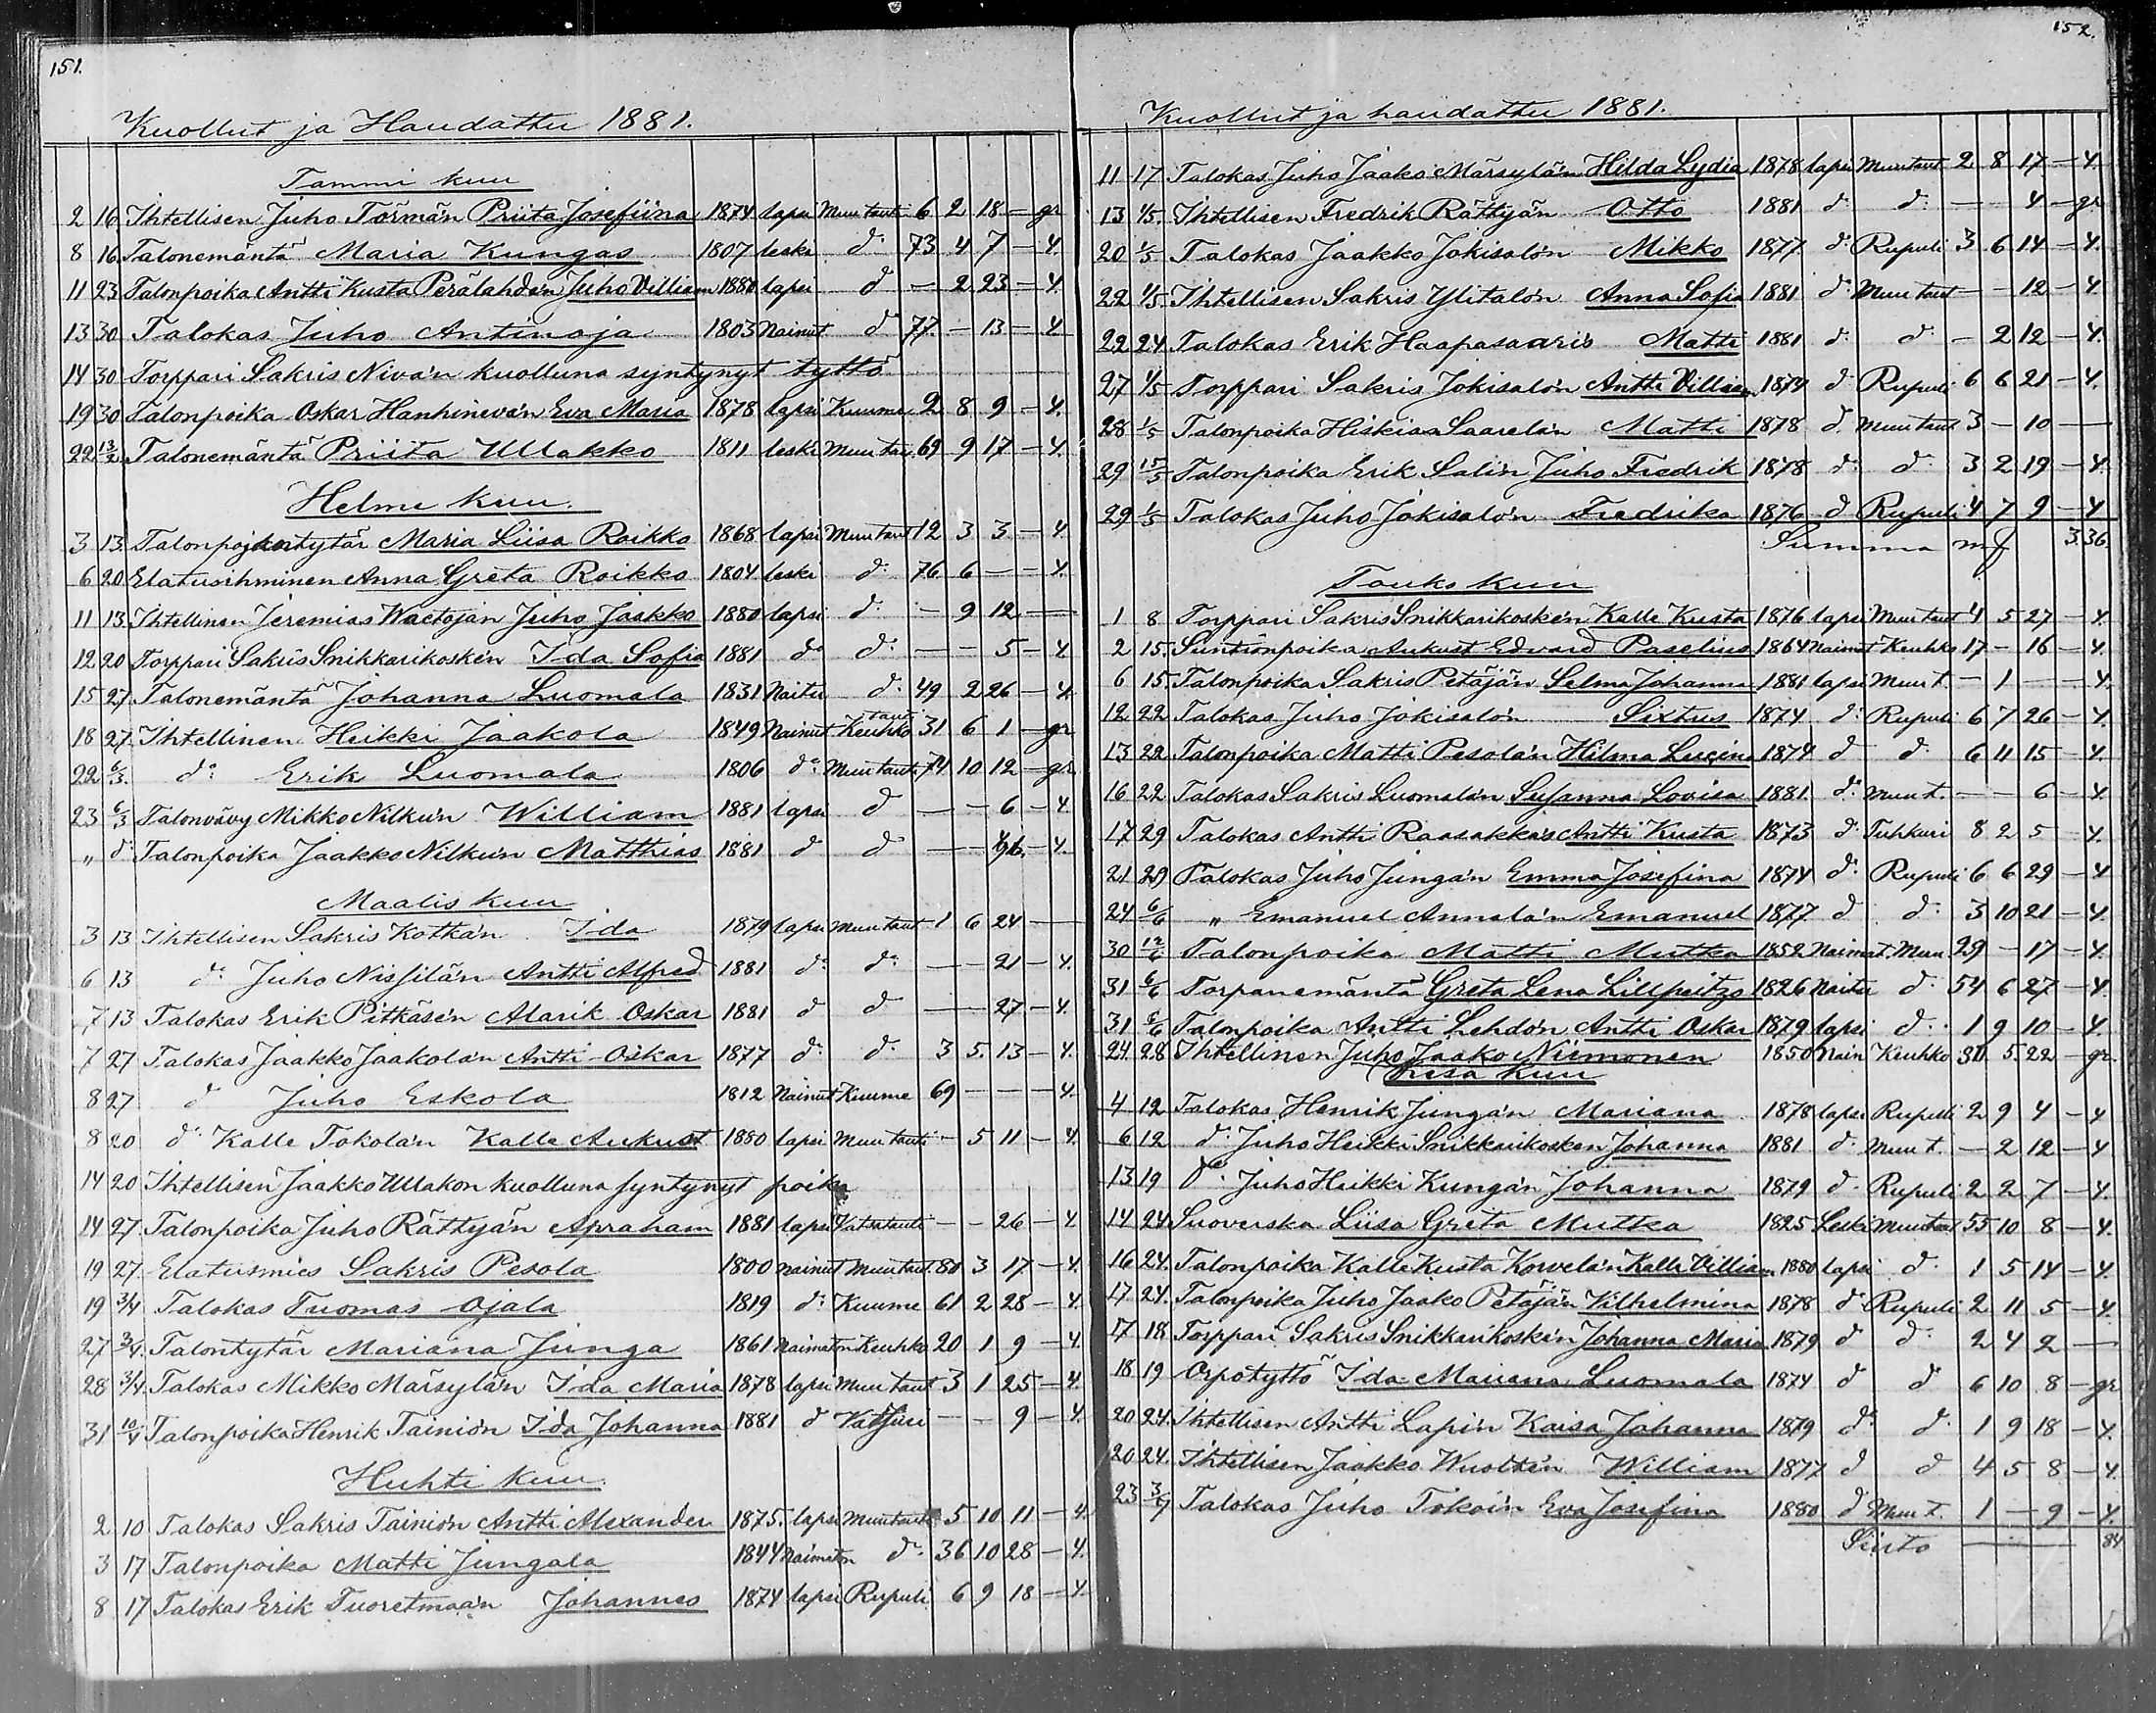 151.
Kuollut ja Haudattu 1881.
Tammi kuu
2 16 Ihtellisen Juho Törmän Priita Josefiina 1874 lapsi Muu tauti 6 2 18 — gr
8 16 Talonemäntä Maria Kungas 1807 leski d:o 73 4 7 — 4.
11 23 Talonpoika Antti Kusta Perälahden Juho Villiam 1880 lapsi d:o — 2 23 — 4.
13 30 Talokas Juho Antinoja 1803 Nainut d:o 77. — 13 — 4.
14 30 Torppari Sakris Niva'n kuolluna syntynyt tyttö
19 30 Talonpoika Oskar Hanhineva'n Eva Maria 1878 lapsi Kuume 2 8 9 — 4.
22 13/2 Talonemäntä Priita Ullakko 1811 leski Muu tau. 69 9 17 — 4.
Helme kuu.
3 13. Talonpojantytär Maria Liisa Roikko 1868 lapsi Muu taut 12 3 3 — 4
6 20 Elatusihminen Anna Greta Roikko 1804 leski d:o 76. 6 — — 4.
11 13. Ihtellinen Jeremias Waetojan Juho Jaakko 1880 lapsi d:o — 9 12 —
12 20 Torppari Sakris Snikkarikoske'n Ida Sofia 1881 d:o d:o — — 5 — 4
15 27. Talonemäntä Johanna Luomala 1831 Naitu d:o 49 2 26 — 4
18 27. Ihtellinen Heikki Jaakola 1849 Nainut Keuhko tauti 31 6 1 — gr
22. 6/3. d:o Erik Luomala 1806 d:o Muu tauti 74 10 12 — gr.
23 6/3 Talonvävy Mikko Nilku'n William 1881 lapsi d:o — — 6 — 4
„ d:o Talonpoika Jaakko Nilku'n Matthias 1881 d:o d:o — — — 4.
Maalis kuu
3 13 Ihtellisen Sakris Kotka'n Ida 1879 lapsi Muu taut 1 6 24 —
6 13 d:o Juho Nissilä'n Antti Alfred 1881 d:o d:o — — 21 — 4.
7 13 Talokas Erik Pitkäse'n Alarik Oskar 1881 d:o d:o — — 27 — 4.
7 27 Talokas Jaakko Jaakola'n Antti Oskar 1877 d:o d:o 3 5. 13 — 4.
8 27 d:o Juho Eskola 1812 Nainut Kuume 69 — — — 4.
8 20 d:o Kalle Tokola'n Kalle Aukust 1880 lapsi Muu tauti — 5 11 — 4.
14 20 Ihtellisen Jaakko Ullakon kuolluna syntynyt poika
14 27. Talonpoika Juho Rättyä'n Apraham 1881 lapsi Vatsatauti — — 26 — 4
19 27. Elatusmies Sakris Pesola 1800 nainut Muu taut. 80 3 17 — 4.
19 3/4 Talokas Tuomas Ojala 1819 d:o Kuume 61 2 28 — 4.
27 3/4. Talontytär Mariana Junga 1861 Naimaton Keuhko 20 1 9 — 4.
28 3/4. Talokas Mikko Märsylä'n Ida Maria 1878 lapsi Muu taut 3 1 25 — 4.
31 10/4 Talonpoika Henrik Tainio'n Ida Johanna 1881 d:o — — 9 — 4.
Huhti kuu.
2 10 Talokas Sakris Tainio'n Antti Alexander 1875. lapsi Muu taut 5 10 11 — 4
3 17 Talonpoika Matti Jungala 1844 Naimaton d:o 36 10 28 — 4.
8 17 Talokas Erik Tuoretmaa'n Johannes 1874 lapsi Rupuli 6 9 18 — 4.
152.
Kuollut ja haudattu 1881.
11 17 Talokas Juho Jaako Märsylä'n Hilda Lydia 1878 lapsi Muu taut 2 8 17 — 4.
13 1/5. Ihtellisen Fredrik Rättyä'n Otto 1881 d:o d:o — — 4 — gr
20 1/5 Talokas Jaakko Jokisalo'n Mikko 1877. d:o Rupuli 3 6 14 — 4.
22 1/5 Ihtellisen Sakris Ylitalo'n Anna Sofia 1881 d:o Muu taut — — 12 — 4.
22 24 Talokas Erik Haapasaari's Matti 1881 d:o d:o — 2 12 — 4.
27 1/5 Torppari Sakris Jokisalo'n Antti Villiam 1874 d:o Rupuli 6 6 21 — 4.
28 1/5 Talonpoika Hiskias Saarela'n Matti 1878 d:o Muu taut 3 — 10 —
29 15/5 Talonpoika Erik Sali'n Juho Fredrik 1878 d:o d:o 3 2 19 — 4.
29 1/5 Talokas Juho Jokisalo'n Fredrika 1876 d:o Rupuli 4 7 9 — 4
Summa mf 3.36.
Touko kuu
1 8 Torppari Sakris Snikkarikoske'n Kalle Kusta 1876 lapsi Muu taut 4 5 27 — 4.
2 15. Suntionpoika Aukust Edvard Paselius 1864 Naimat Keuhko 17 — 16 — 4.
6 15. Talonpoika Sakris Petäjä'n Selma Johanna 1881 lapsi Muu t. — 1 — — 4.
12 22 Talokas Juho Jokisalo'n Sixtus 1874 d:o Rupuli 6 7 26 — 4.
13 22 Talonpoika Matti Pesola'n Hilma Lucina 1874 d:o d:o 6 11 15 — 4.
16 22 Talokas Sakris Luomala'n Susanna Lovisa 1881. d:o Muu t. — — 6 — 4.
17 29 Talokas Antti Raasakka's Antti Kusta 1873 d:o Tuhkuri 8 2 5 — 4.
21 29 Talokas Juho Junga'n Emma Josefina 1874 d:o Rupuli 6 6 29 — 4
24 6/6 „ Emanuel Annala'n Emanuel 1877. d:o d:o 3 10 21 — 4.
30 12/6 Talonpoika Matti Mutka 1852 Naimat. Muu 29 — 17 — 4.
31 6/6 Torpanemäntä Greta Lena Lillpeitzo 1826 Naitu d:o 54 6 27 — 4.
31 6/6 Talonpoika Antti Lehdo'n Antti Oskar 1879 lapsi d:o 1 9 10 — 4.
24 28 Ihtellinen Juho Jaako Niemonen 1850 Nain Keuhko 30 5 22 — gr.
Kesä kuu
4 12 Talokas Henrik Junga'n Mariana 1878 lapsi Rupuli 2 9 4 — 4
6 12 d:o Juho Heikki Snikkarikosken Johanna 1881 d:o Muu t. — 2 12 — 4
13 19 D:o Juho Heikki Kunga'n Johanna 1879 d:o Rupuli 2 2 7 — 4.
14 24 Suoverska Liisa Greta Mutka 1825 Leski Muu taut 55 10 8 — 4.
16 24. Talonpoika Kalle Kusta Korvela'n Kalle Villiam 1880 lapsi d:o 1 5 14 — 4.
17 24. Talonpoika Juho Jaako Petäjä'n Vilhelmina 1878 d:o Rupuli 2 11 5 — 4.
17 18 Torppari Sakris Snikkarikoske'n Johanna Maria 1879 d:o d:o 2 4 2 —
18 19 Orpotyttö Ida Mariana Luomala 1874 d:o d:o 6 10 8 — gr
20 24. Ihtellisen Antti Lapin Kaisa Johanna 1879 d:o d:o 1 9 18 — 4.
20 24. Ihtellisen Jaakko Wuolte'n William 1877 d:o d:o 4 5 8 — 4.
23 3/7 Talokas Juho Tokoi'n Eva Josefina 1880 d:o Muu t. 1 — 9 — 4.
Siirto 84